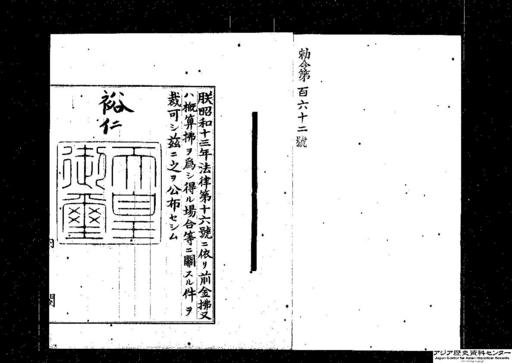 勅令第百六十二號
朕昭和十三年法律第十六號ニ依リ前金拂又
ハ概算拂ヲ爲シ得ル場合等ニ關スル件ヲ
裁可シ茲ニ之ヲ公布セシム
裕仁
天皇
御璽
内閣
アジア歴史資料センター
Japan Center for Asian Historical Records